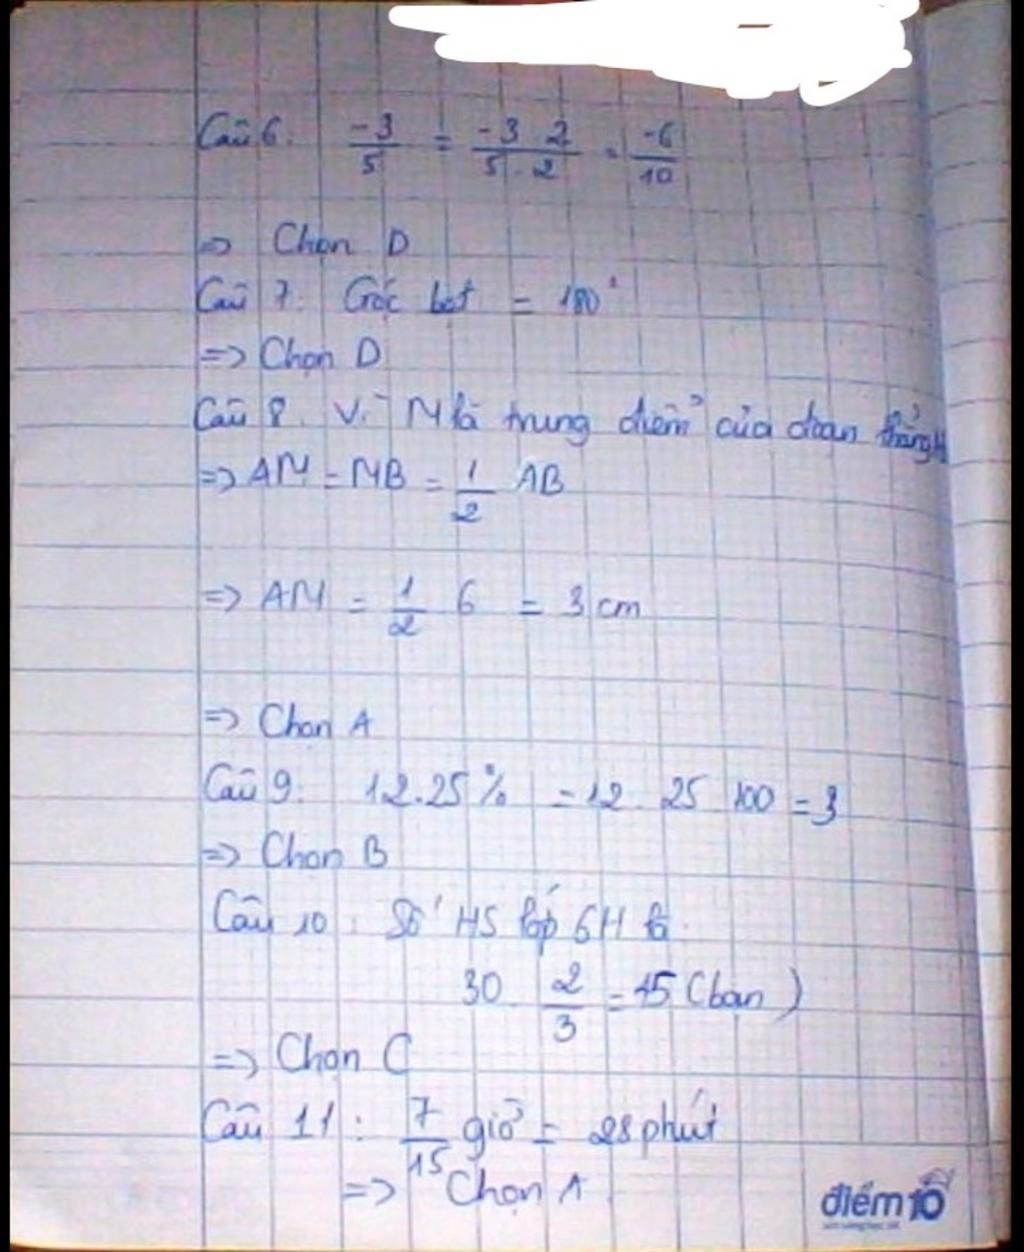 Câu 6. -3/5 = -3 . 2/5 . 2 = -6/10
=> Chọn D
Câu 7: Góc bẹt = 180°
=> Chọn D
Câu 8. Vì M là trung điểm của đoạn thẳng
=> AM = MB = 1/2 AB
=> AM = 1/2 6 = 3 cm
=> Chọn A
Câu 9: 12.25% = 12 . 25 100 = 3
=> Chọn B
Câu 10: Số HS lớp 6H là
30 . 2/3 = 45 (bạn)
=> Chọn C
Câu 11: 7/15 giờ = 28 phút
=> Chọn A
điểm 10